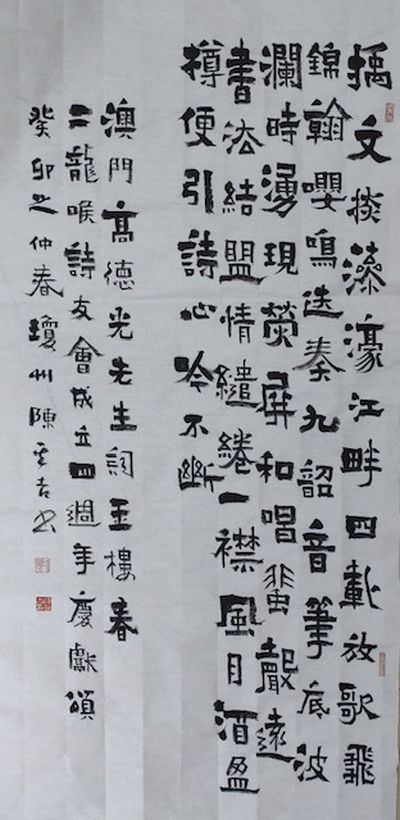 摛文掞藻濠江畔四載放歌飛
錦翰嚶鳴迭奏九韶音筆底波
瀾時湧現熒屏和唱蜚聲遠
書法結盟情繾綣一襟風月酒盈
樽便引詩心吟不斷
澳門高德光先生詞玉樓春
二龍喉詩友會成立四週年慶獻頌
癸卯之仲春瓊州陳書